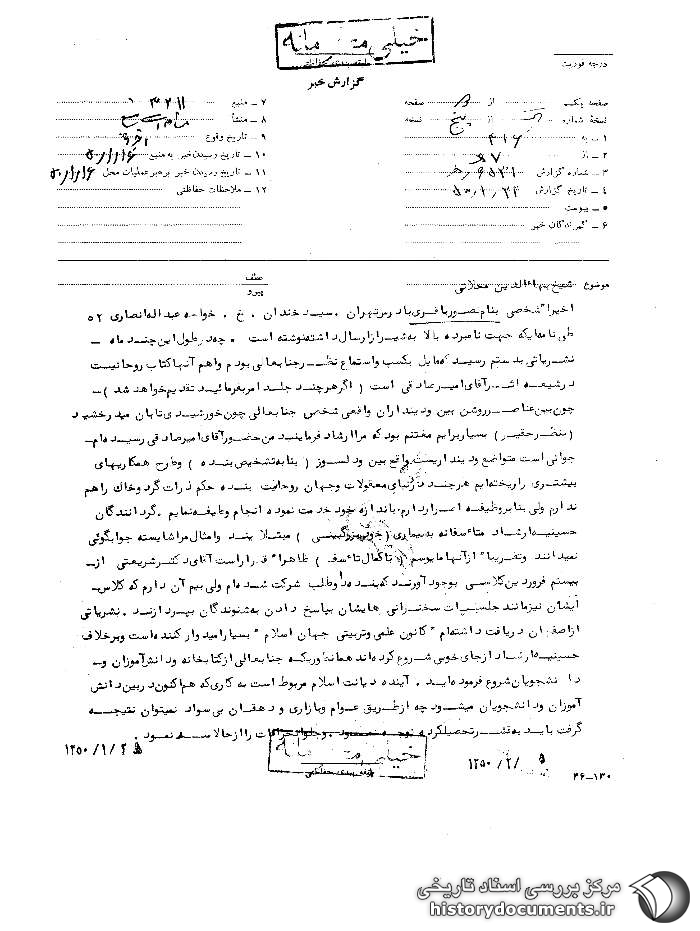 خیلی محرمانه
طبقه‌بندی حفاظتی
گزارش خبر
درجه فوریت
صفحه یک از صفحه
نسخه شماره از پنج نسخه
۱ ـ به ۳۱۶
۲ ـ از ۷
۳ ـ شماره گزارش
۴ ـ تاریخ گزارش
۵ ـ پیوست
۶ ـ گیرندگان خبر
۷ ـ منبع
۸ ـ منشأ
۹ ـ تاریخ وقوع
۱۰ ـ تاریخ رسیدن خبر به منبع
۱۱ ـ تاریخ رسیدن خبر به رهبر عملیات محل
۱۲ ـ ملاحظات حفاظتی
موضوع شیخ بهاءالدین محلاتی
عطف
پیرو
اخیرا" شخصی بنام منصور باقری بادرس تهران ـ سیدخندان . خ . خواجه عبداله انصاری ۵۲
طی نامه‌ایکه جهت نامبرده بالا به شیراز ارسال داشته نوشته است . چه در طول این چند ماه ـ
نشریاتی بدستم رسید که مایل بکسب واستماع نظر جنابعالی بودم واهم آنها کتاب روحانیت
در شیعه اثر آقای امیرصادقی است ( اگر هر چند جلد امر بفرمائید تقدیم خواهد شد ) ـ
چون بین عناصر روشن بین ودینداران واقعی شخصی جنابعالی چون خورشیدی تابان میدرخشید
( بنظر حقیر ) بسیار برایم مغتنم بود که مرا ارشاد فرمایند من حضور آقای امیرصادقی رسیده‌ام ـ
جوانی است متواضع ودیندار واقع بین ودلسوز ( بنا به تشخیص بنده ) وطرح همکاریهای
بیشتری را ریخته‌ایم هر چند در دنیای معقولات وجهان روحانیت بنده حکم ذرات گرد وخاک را هم
ندارم ولی بنابر وظیفه اصرار دارم باندازه خود خدمت نموده انجام وظیفه نمایم . گردانندگان
حسینیه ارشاد متأسفانه به بیماری ( خودبزرگ‌بینی ) مبتلا بند وامثال مرا شایسته جوابگوئی
نمیدانند وتقریبا" از آنها مایوسم ( با کمال تأسف ) ظاهرا" قرار است آقای دکتر شریعتی از ـ
بیستم فروردین کلاسی بوجود آورند که بنده داوطلب شرکت شده‌ام ولی بیم آن دارم که کلاس ـ
ایشان نیز مانند جلسات سخنرانی هایشان بپاسخ دادن به شنوندگان نپردازند . نشریاتی
از اصفهان دریافت داشته‌ام " کانون علمی وتربیتی جهان اسلام " بسیار امیدوار کننده است وبر خلاف
حسینیه ارشاد از جای خوبی شروع کرده‌اند همانطوریکه جنابعالی از کتابخانه ودانش آموزان و ـ
دانشجویان شروع فرموده‌اید . آینده دیانت اسلام مربوط است به کاری که هم اکنون در بین دانش
آموزان ودانشجویان میشود چه از طریق عوام وبازاری و دهقان بی سواد نمیتوان نتیجه
گرفت باید به قشر تحصیلکرده توجه نمود . وجلو انحرافات را از حالا سد نمود .
۱۲۵۰/۱/۲۵
۱۲۵۰/۲/۵
خیلی محرمانه
طبقه بندی حفاظتی
۳۶-۱۳۰
مرکز بررسی اسناد تاریخی
historydocuments.ir